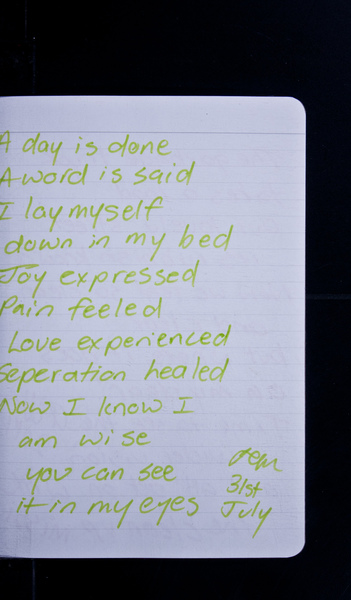 A day is done
A word is said
I lay myself
down in my bed
Joy expressed
Pain feeled
Love experienced
Seperation healed
Now I know I
am wise
you can see
it in my eyes
31st
July